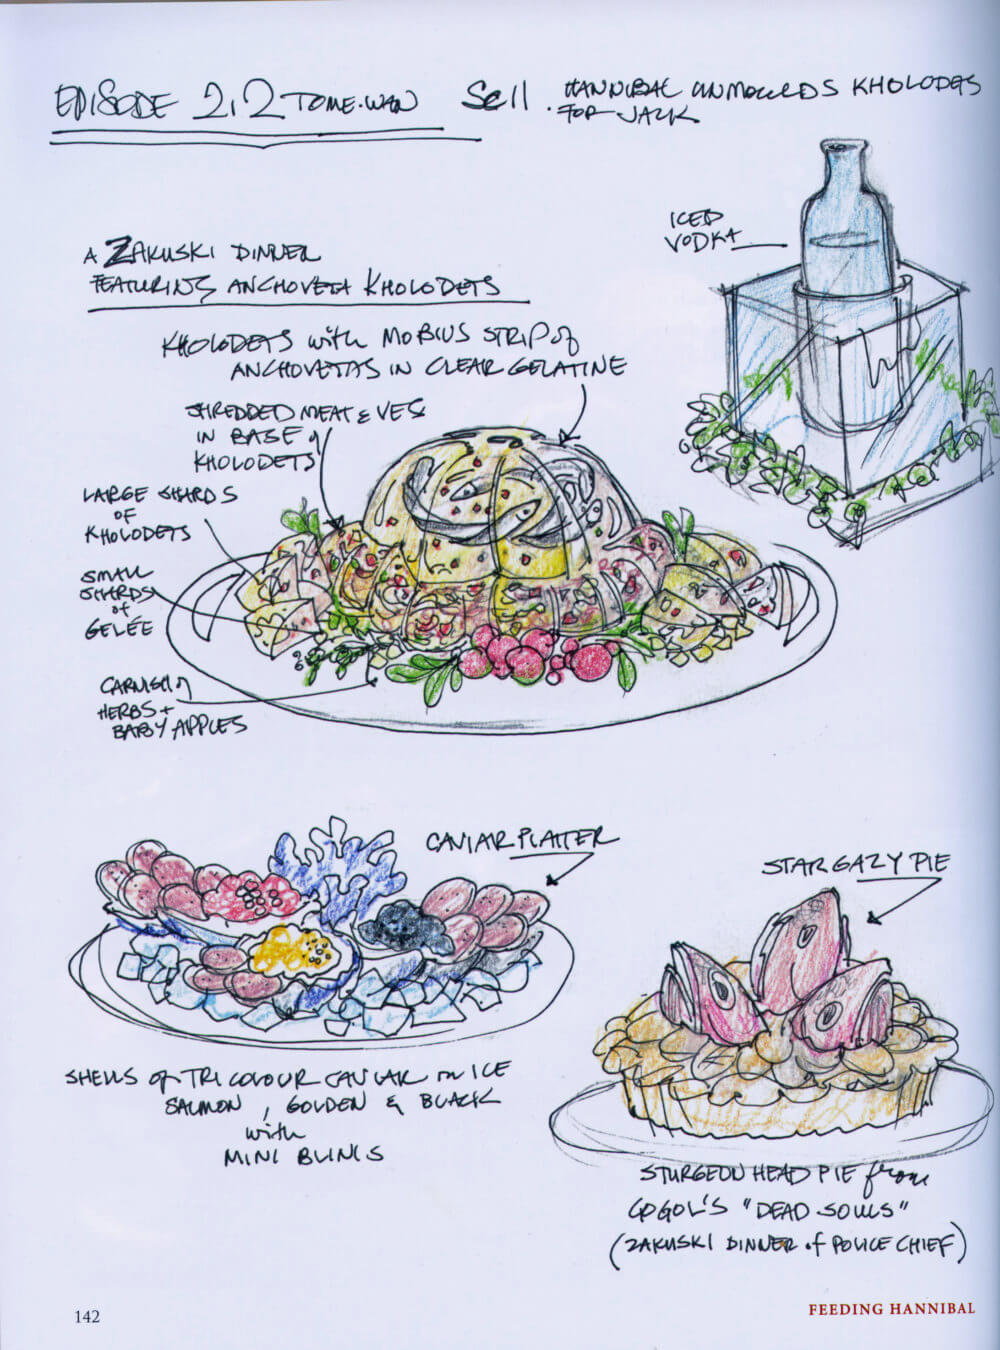 EPISODE 2.12 TOME-WAN
SC 11. HANNIBAL UNMOULDS KHOLODETS
FOR JACK
ICED
VODKA
A ZAKUSKI DINNER
FEATURING ANCHOVETA KHOLODETS
KHOLODETS with MOBIUS STRIP of
ANCHOVETAS IN CLEAR GELATINE
SHREDDED MEAT & VEG
IN BASE of
KHOLODETS
LARGE SHARDS
OF
KHOLODETS
SMALL
SHARDS
of
GELÉE
GARNISH of
HERBS +
BABY APPLES
CAVIAR PLATTER
STARGAZY PIE
SHELLS of TRICOLOUR CAVIAR on ICE
SALMON, GOLDEN & BLACK
with
MINI BLINIS
STURGEON HEAD PIE from
GOGOL'S "DEAD SOULS"
(ZAKUSKI DINNER of POLICE CHIEF)
142
FEEDING HANNIBAL